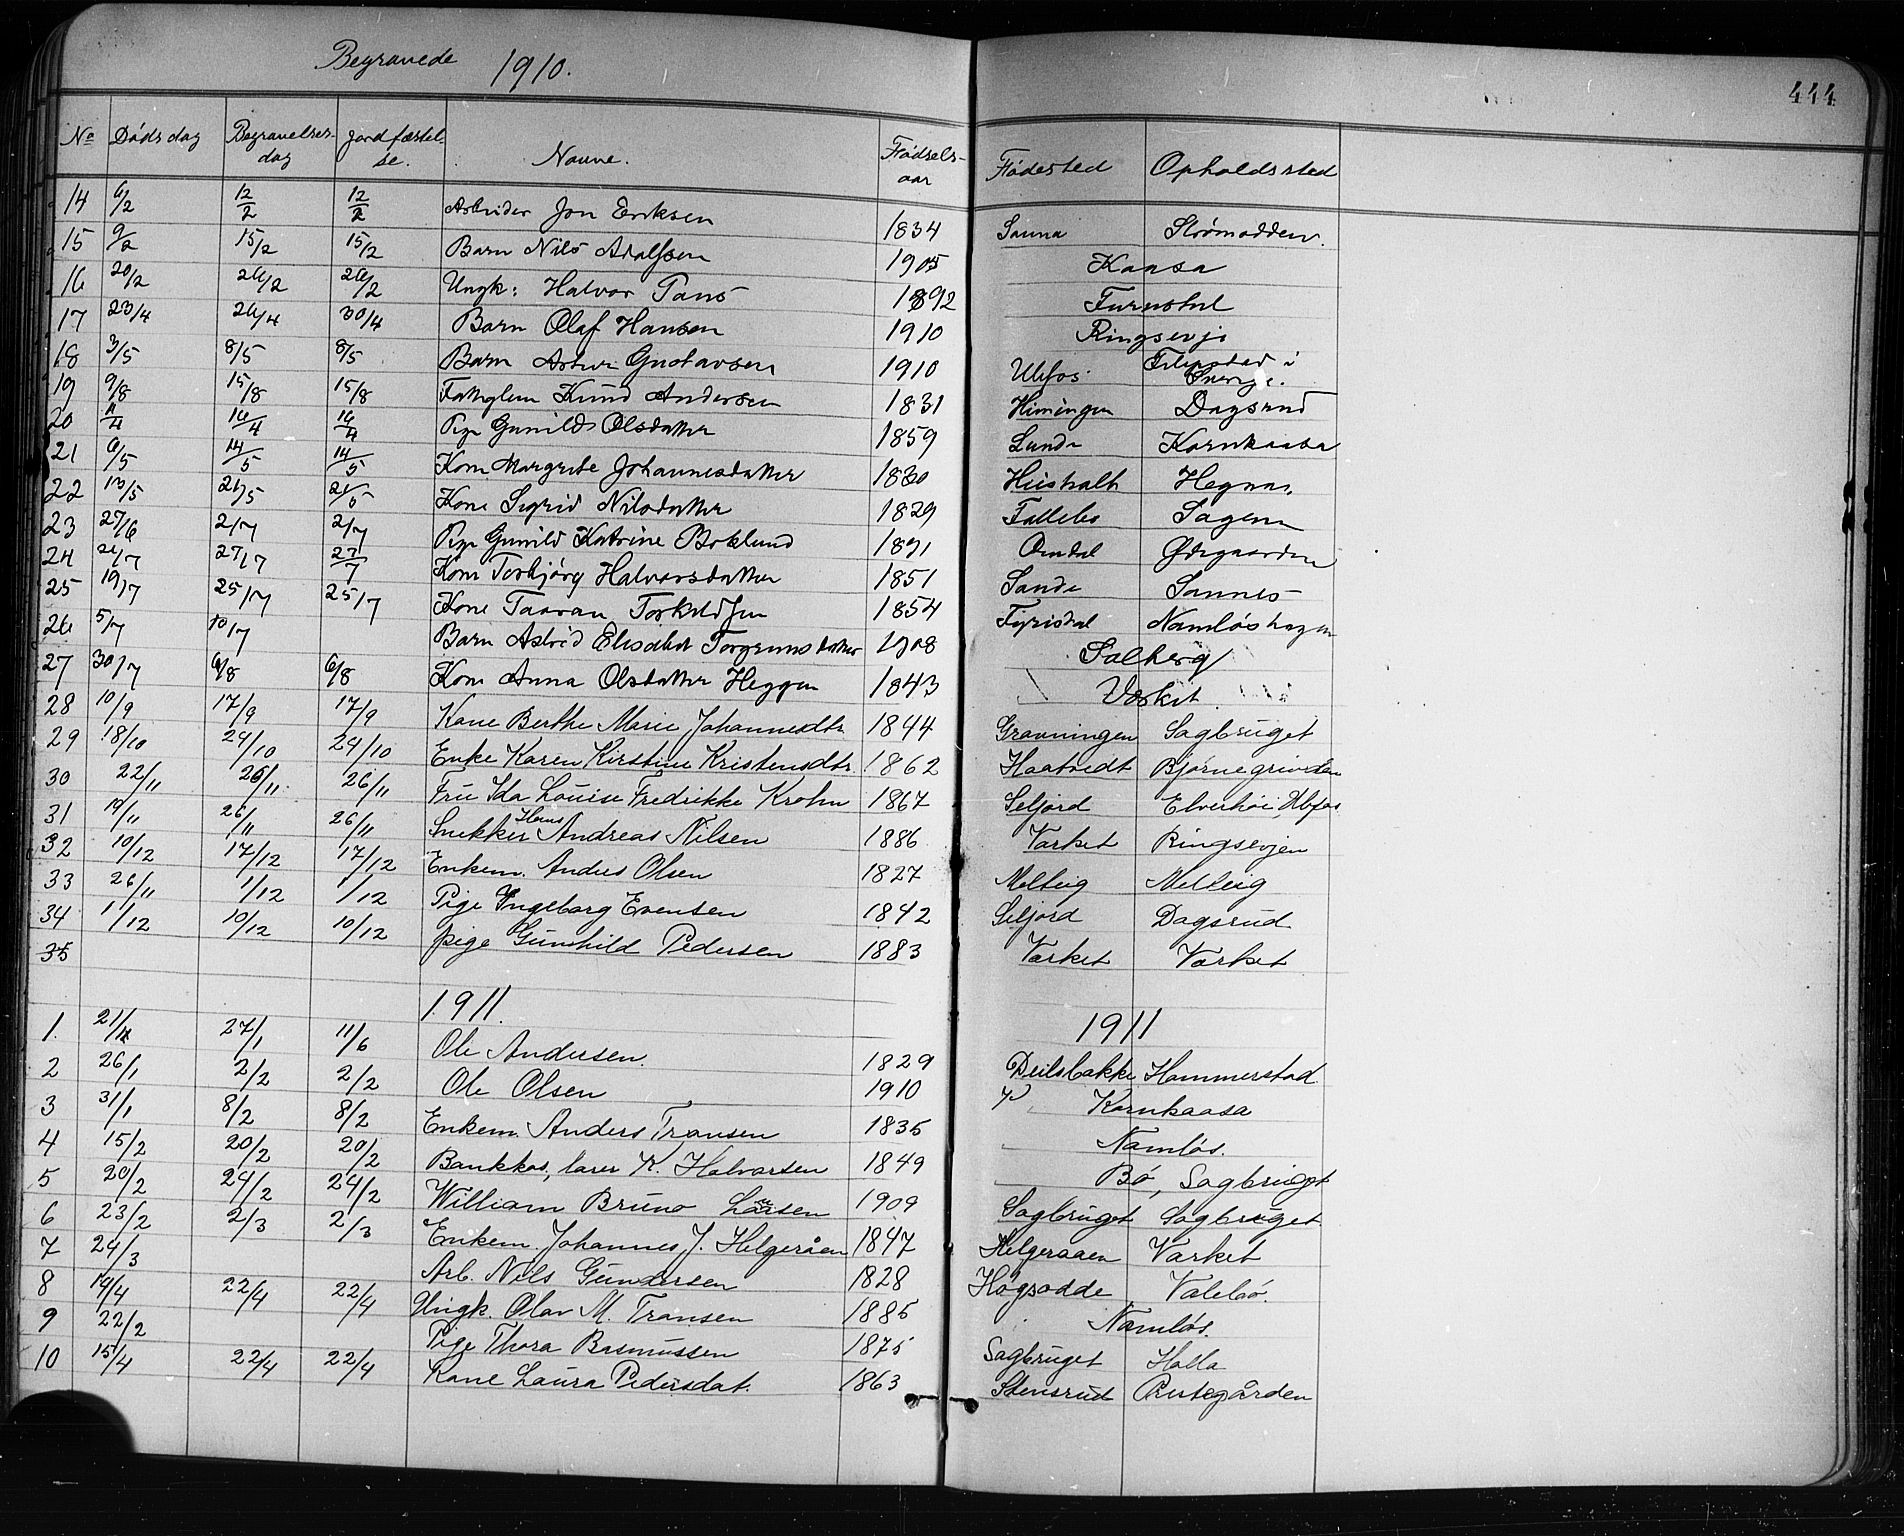 Begravede 1910.
444
No Dødsdag Begravelses-dag Jordfæstel-se. Navne. Fødsels-aar Fødested Opholdssted
14 6/2 12/2 12/2 Arbeider Jon Eriksen 1834 Sauna Strømodden.
15 9/2 15/2 15/2 Barn Nils Adolfsen 1905 Kaasa
16 20/2 26/2 26/2 Ungk: Halvor 1892
17 23/4 26/4 30/4 Barn Olaf Hansen 1910 Ringsevje
18 3/5 8/5 8/5 Barn Artur Gustavsen 1910 Ulefos Filipstad i Sverige.
19 9/8 15/8 15/8 Knud Andersen 1831 Himingen Dagsrud
20 11/4 16/4 16/4 Pige Gunild Olsdatter 1859 Lunde Kornkaasa
21 6/5 14/5 14/5 Kone Margrete Johannesdatter 1830 Hegna
22 13/5 21/5 21/5 Kone Sigrid Nilsdatter 1829 Sagene
23 27/6 2/7 2/7 Pige Gunild Katrine Boklund Omdal Ødegaarden
24 21/7 27/7 27/7 Kone Torbjørg Halvorsdatter 1851 Sande Sannes
25 19/7 25/7 25/7 Kone Taaran 1854 Fyrisdal Namløshagen
26 5/7 10/7 Barn Astrid Elisabet Torgrimsdatter 1908 Solberg
27 30/7 6/8 6/8 Kone Anna Olsdatter Heggen 1843 Værket
28 10/9 17/9 17/9 Kone Berthe Marie Johannesdtr 1844 Gravningen Sagbruget
29 18/10 24/10 24/10 Enke Karen Kirstine Kristensdtr. 1862 Haatvedt Bjørnegrinden
30 22/11 26/11 26/11 Fru Ida Louise Fredrikke Krohn 1867 Seljord Elverhøi, Ulefos
31 19/11 26/11 26/11 Snekker Hans Andreas Nilsen 1886 Værket Ringsevjen
32 10/12 17/12 17/12 Enkem. Anders Olsen 1827 Melteig Melteig
33 26/11 1/12 1/12 Pige Ingeborg Evensen 1842 Seljord Dagsrud
34 1/12 10/12 10/12 pige Gunhild Pedersen 1883 Værket Værket
35
1911. 1911
1. 21/1 27/1 11/6 Ole Andersen. 1829 Deilsbakke Hammerstad.
2 26/1 2/2 2/2 Ole Olsen 1910 Kornkaasa
3 31/1 8/2 8/2 Enkem. Anders Transen 1835 Namløs.
4 15/2 20/2 20/2 Bankkas, lærer K. Halvorsen 1849 Bø, Sagbruget
5 20/2 24/2 24/2 William Bruno Larsen 1909 Sagbruget Sagbruget
6 23/2 2/3 2/3 Enkem. Johannes J. Helgeråen 1847 Helgeraaen Værket
7 24/3 Arb. Nils Gundersen 1828 Høgsodde Valebø.
8 14/4 22/4 22/4 Ungk. Olav M. Transen 1885 Namløs.
9 22/2 Pige Thora Rasmussen 1875 Sagbruget Holla
10 15/4 22/4 22/4 Kone Laura Pedersdat. 1863 Stensrud